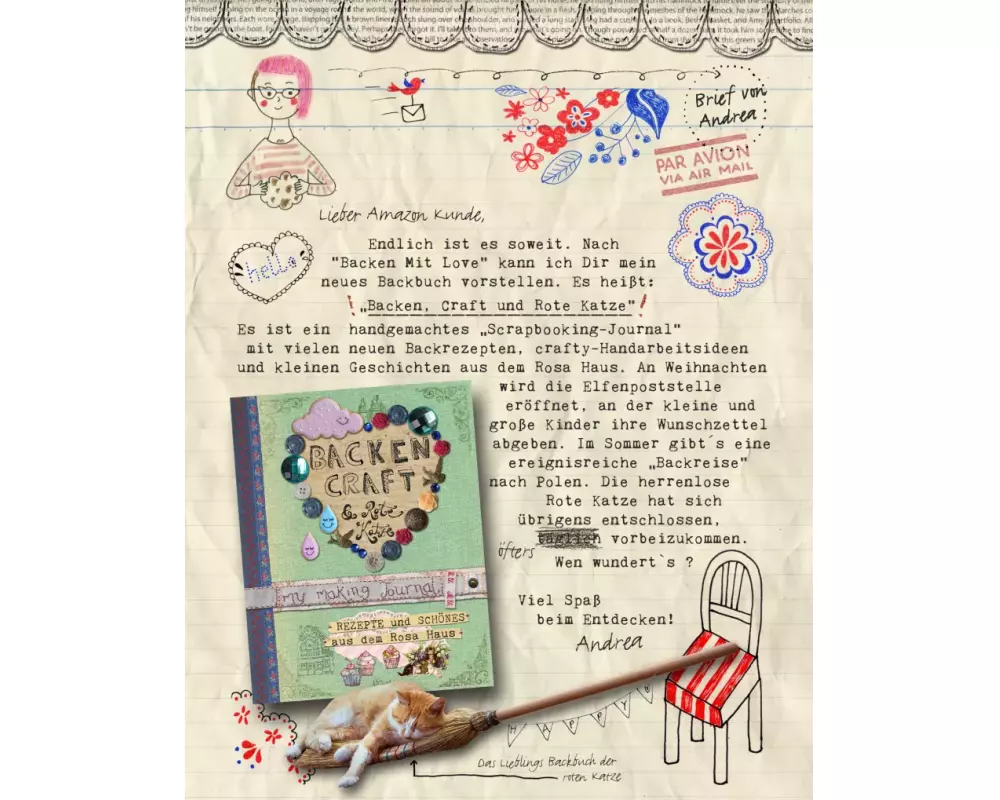 himself sitting on the
Brief von
Andrea
PAR AVION
VIA AIR MAIL
Lieber Amazon Kunde,
hello
Endlich ist es soweit. Nach
"Backen Mit Love" kann ich Dir mein
neues Backbuch vorstellen. Es heißt:
! „Backen, Craft und Rote Katze" !
Es ist ein handgemachtes „Scrapbooking-Journal"
mit vielen neuen Backrezepten, crafty-Handarbeitsideen
und kleinen Geschichten aus dem Rosa Haus. An Weihnachten
wird die Elfenpoststelle
eröffnet, an der kleine und
große Kinder ihre Wunschzettel
abgeben. Im Sommer gibt´s eine
ereignisreiche „Backreise"
nach Polen. Die herrenlose
Rote Katze hat sich
übrigens entschlossen,
öfters täglich vorbeizukommen.
Wen wundert`s ?
Viel Spaß
beim Entdecken!
Andrea
BACKEN
CRAFT
& Rote
Katze
my making Journal
REZEPTE und SCHÖNES
aus dem Rosa Haus
HAPPY
Das Lieblings Backbuch der
roten Katze